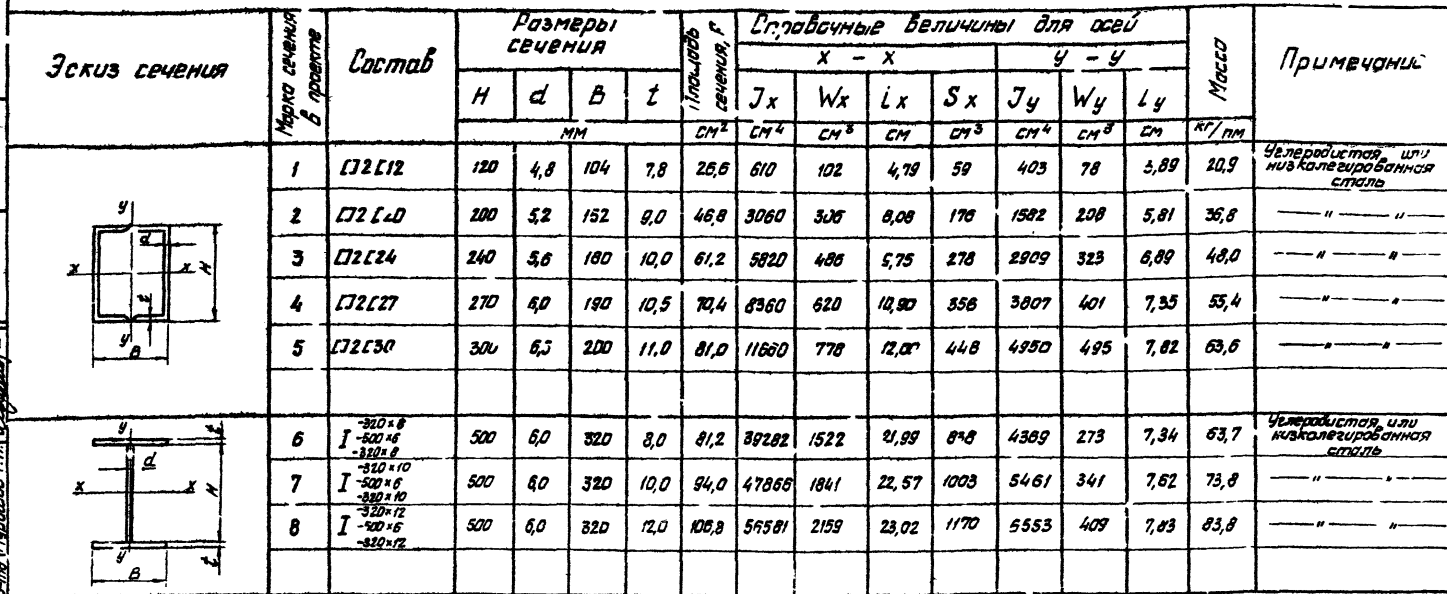 Эскиз сечения | Марка сечения в проекте | Состав | Размеры сечения | Площадь сечения, F | Справочные величины для осей | Масса | Примечание
x - x | y - y
H | d | B | t | Jx | Wx | ix | Sx | Jy | Wy | iy
мм | см² | см⁴ | см³ | см | см³ | см⁴ | см³ | см | кг/пм
1 | []2[12 | 120 | 4,8 | 104 | 7,8 | 26,6 | 610 | 102 | 4,79 | 59 | 403 | 78 | 3,89 | 20,9 | Углеродистая или низколегированная сталь
2 | []2[20 | 200 | 5,2 | 152 | 9,0 | 46,8 | 3060 | 306 | 8,08 | 176 | 1582 | 208 | 5,81 | 36,8 | — " — "
3 | []2[24 | 240 | 5,6 | 180 | 10,0 | 61,2 | 5820 | 486 | 9,75 | 278 | 2909 | 323 | 6,89 | 48,0 | — " — "
4 | []2[27 | 270 | 6,0 | 190 | 10,5 | 70,4 | 8360 | 620 | 10,90 | 356 | 3807 | 401 | 7,35 | 55,4 | — " — "
5 | []2[30 | 300 | 6,5 | 200 | 11,0 | 81,0 | 11660 | 778 | 12,00 | 448 | 4950 | 495 | 7,82 | 63,6 | — " — "
y
d
x x H
t
y
B
6 | I -320×8 -500×6 -320×8 | 500 | 6,0 | 320 | 8,0 | 81,2 | 39282 | 1522 | 21,99 | 838 | 4369 | 273 | 7,34 | 63,7 | Углеродистая, или низколегированная сталь
7 | I -320×10 -500×6 -320×10 | 500 | 6,0 | 320 | 10,0 | 94,0 | 47866 | 1841 | 22,57 | 1003 | 5461 | 341 | 7,62 | 73,8 | — " — "
8 | I -320×12 -500×6 -320×12 | 500 | 6,0 | 320 | 12,0 | 106,8 | 56581 | 2159 | 23,02 | 1170 | 6553 | 409 | 7,83 | 83,8 | — " — "
y t
d
x x H
y t
B